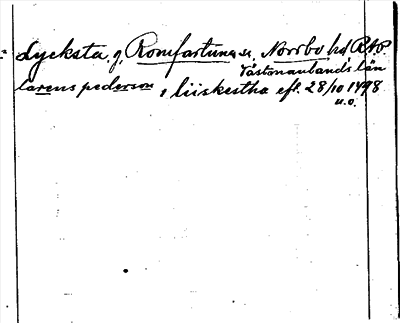 Lycksta, g, Romfartuna sn, Norrbo hd RAP.
Västmanlands län
larens pederson, i liiskestha eft. 28/10 1498
u.o.